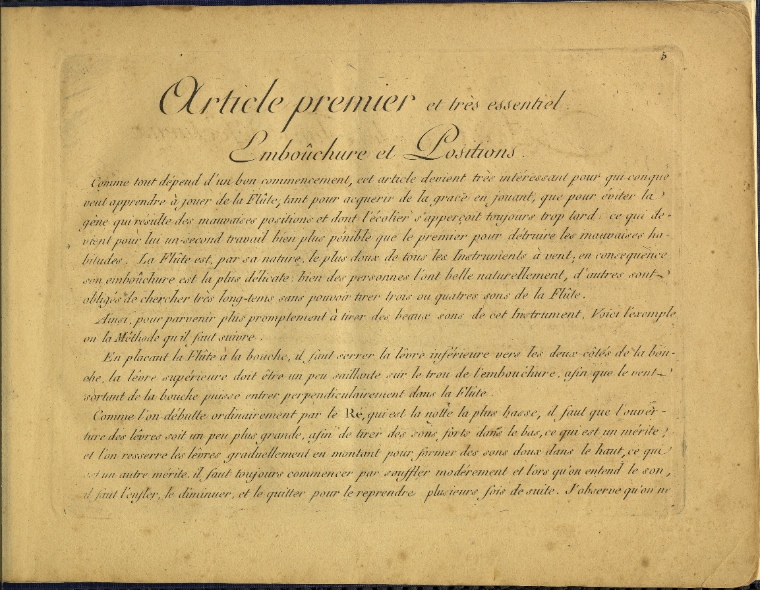 5
Article premier et très essentiel.
Emboûchure et Positions.
Comme tout dépend d'un bon commencement, cet article devient très intéressant pour qui conque
veut apprendre à jouer de la Flûte, tant pour acquerir de la grace en jouant, que pour éviter la
gêne qui resulte des mauvaises positions et dont l'écolier s'apperçoit toujours trop tard: ce qui de-
vient pour lui un second travail bien plus pénible que le premier pour détruire les mauvaises ha-
bitudes. La Flûte est, par sa nature, le plus doux de tous les Instruments à vent, en conséquence
son emboûchure est la plus délicate: bien des personnes l'ont belle naturellement, d'autres sont
obligés de chercher très long-tems sans pouvoir tirer trois ou quatres sons de la Flûte.
Ainsi, pour parvenir plus promptement à tirer des beaux sons de cet Instrument, Voici l'exemple
ou la Méthode qu'il faut suivre.
En plaçant la Flûte à la bouche, il faut serrer la lèvre inférieure vers les deux côtés de la bou-
che, la lèvre supérieure doit être un peu saillante sur le trou de l'embouchure, afin que le vent
sortant de la bouche puisse entrer perpendiculairement dans la Flûte.
Comme l'on débutte ordinairement par le Ré, qui est la notte la plus basse, il faut que l'ouver-
ture des lèvres soit un peu plus grande, afin de tirer des sons forts dans le bas, ce qui est un mérite;
et l'on resserre les lèvres graduellement en montant pour former des sons doux dans le haut, ce qui
est un autre mérite. il faut toujours commencer par souffler modérement et lors qu'on entend le son,
il faut l'enfler, le diminuer, et le quitter pour le reprendre plusieurs fois de suite. J'observe qu'on ne